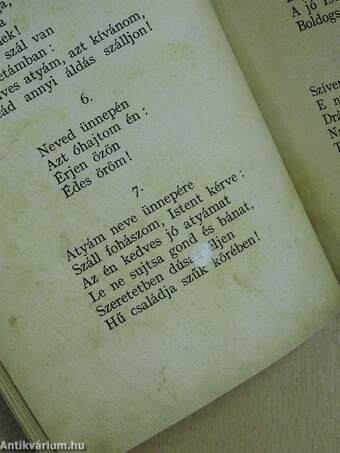 nek!
szál van
etámban:
ves atyám, azt kívánom,
ád annyi áldás szálljon!
6.
Neved ünnepén
Azt óhajtom én:
Érjen özön
Édes öröm!
7.
Atyám neve ünnepére
Száll fohászom, Istent kérve:
Az én kedves jó atyámat
Le ne sujtsa gond és bánat,
Szeretetben dús
Hű családja szűk körében!
A jó Iste
Boldogs
Szíven
E n
Drá
Na
T
Antikvárium.hu